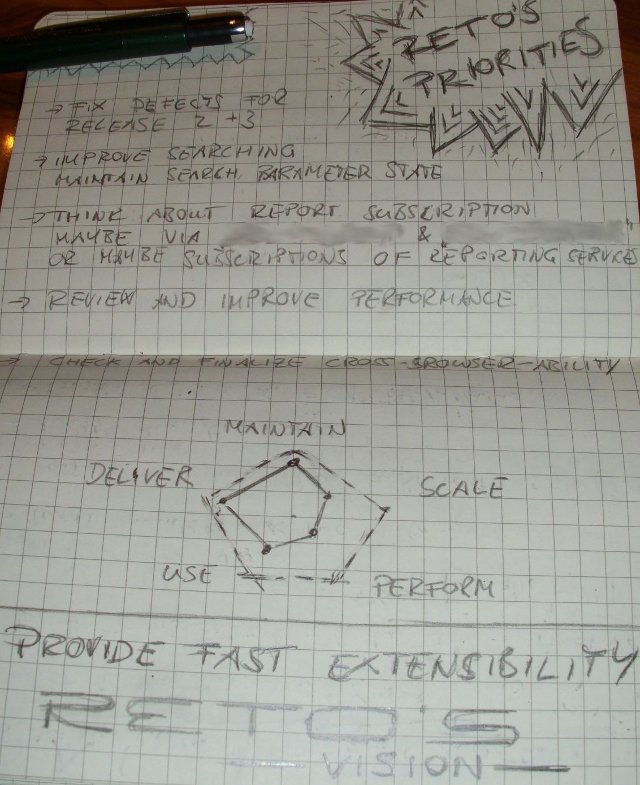 RETO'S
PRIORITIES
→ FIX DEFECTS FOR
RELEASE 2 + 3
→ IMPROVE SEARCHING
MAINTAIN SEARCH PARAMETER STATE
→ THINK ABOUT REPORT SUBSCRIPTION
MAYBE VIA & "
OR MAYBE SUBSCRIPTIONS OF REPORTING SERVICES
→ REVIEW AND IMPROVE PERFORMANCE
→ CHECK AND FINALIZE CROSS-BROWSER-ABILITY
MAINTAIN
DELIVER
SCALE
USE
PERFORM
PROVIDE FAST EXTENSIBILITY
RETO'S
— VISION —